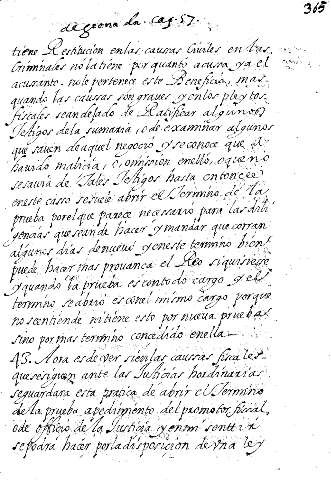 365
de grana da. Cag. 57.
tiene Restitucion en las causas Civiles en las
Criminales no la tiene por quanto acusa ya el
acusante. no le pertenece este Beneficio, mas
quando las caussas son graves y en los pleytos
fiscales se an dejado de Ratificar algunos
testigos de la sumaria, o de examinar algunos
que saven de aquel negocio y se conoce que á
havido malicia, ó omision en ello, que no
se savia de tales testigos hasta entonces
en este casso se suele abrir el termino de la
prueba por el que parece necessario para las dili
gencias que se an de hacer y mandar que corran
algunos dias de nuevo y en este termino bien
puede hacer mas provança el Reo si quisiere
y quando la prueba es con todo cargo y el
termino se abrió es con el mismo cargo porque
no se entiende ni tiene esto por nueva prueba
sino por mas termino concedido en ella
43. Aora es de ver si en las caussas fiscales
que se siguen ante las Justicias hordinarias
se guardara esta pratica de abrir el termino
de la prueba a pedimento del promotor fiscal
o de officio de la Justicia y en mi senttir
se podrá hacer por la disposicion de una ley